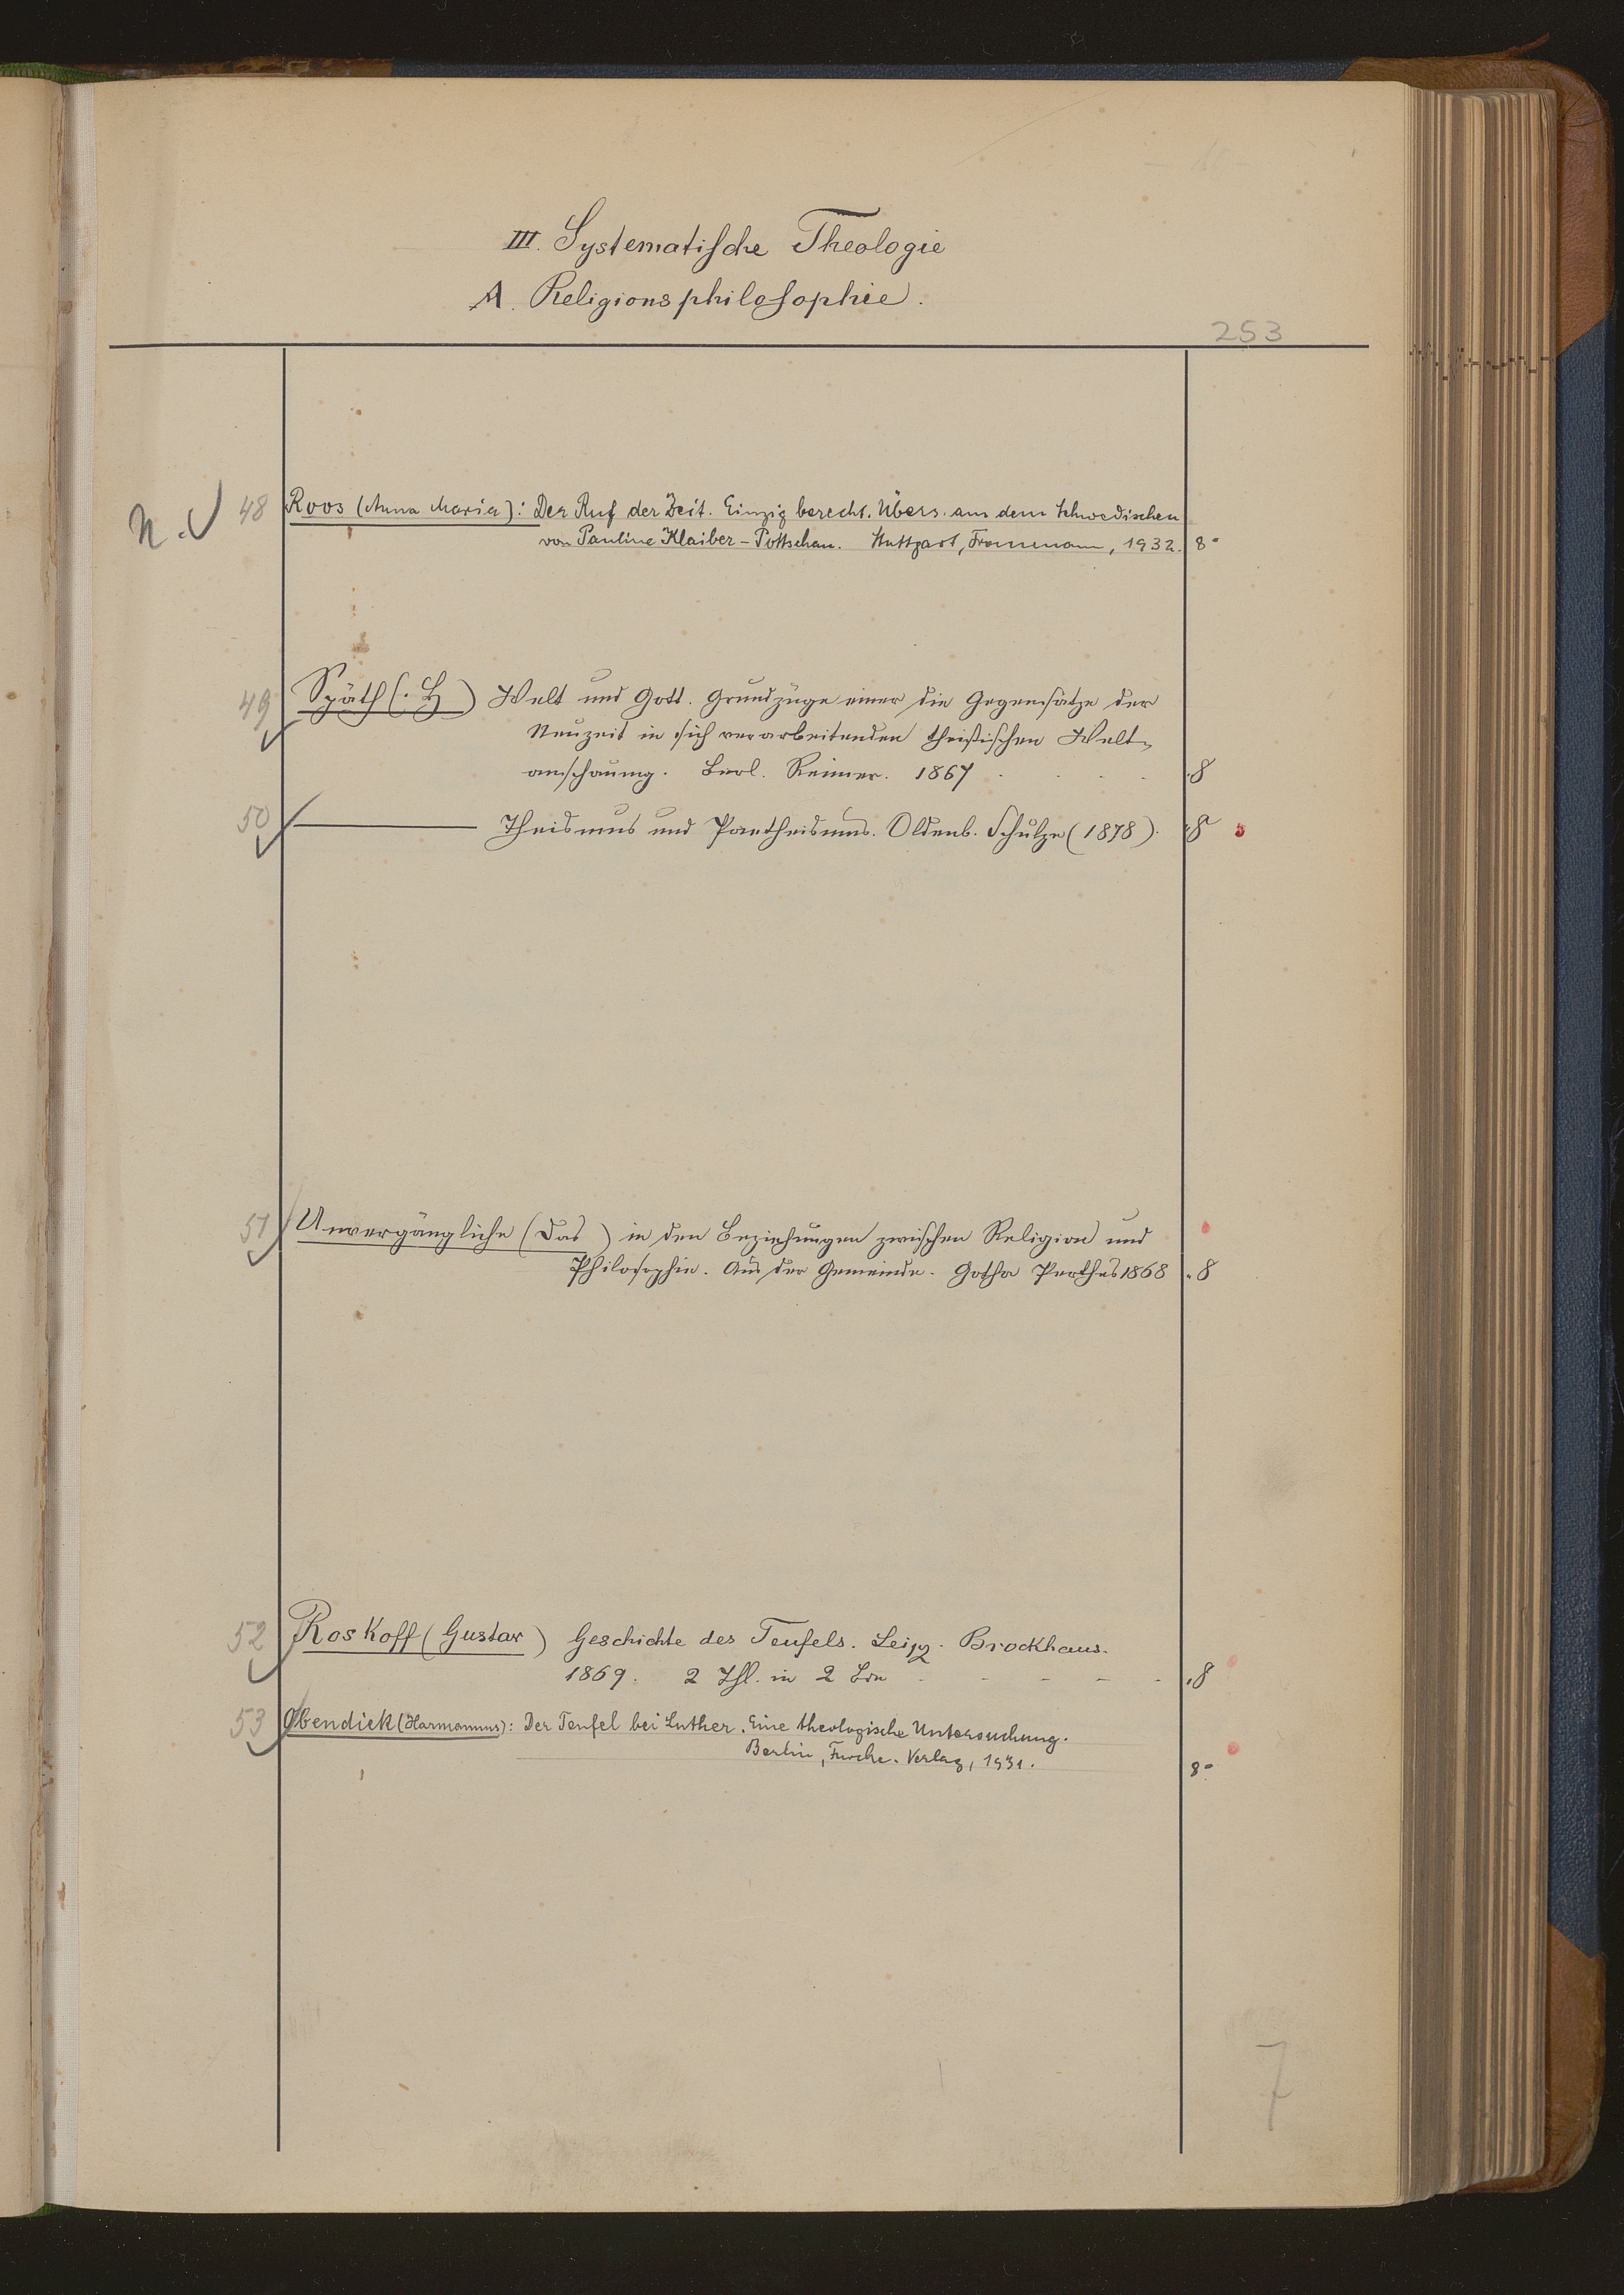 III. Systematische Theologie
A. Religionsphilosophie.
253
N. 48 Roos (Anna Maria): Der Ruf der Zeit. Einzig berecht. Übers. aus dem Schwedischen
von Pauline Klaiber-Gottschau. Stuttgart, Frommann, 1932. 8°
49 Späth (. H) Welt und Gott. Grundzüge einer die Gegensätze der
Neuzeit in sich verarbeitenden theistischen Welt-
anschauung. Berl. Reimer. 1867 . . . . 8
50 ——— Theismus und Pantheismus. Oldenb. Schulze (1878). 8
51 Unvergängliche (Das) in den Beziehungen zwischen Religion und
Philosophie. Aus der Gemeinde. Gotha Perthes 1868 . 8
52 Roskoff (Gustav) Geschichte des Teufels. Leipz. Brockhaus.
1869. 2 Thl. in 2 Bdn - - - - - . 8
53 Obendiek (Harmannus): Der Teufel bei Luther. Eine theologische Untersuchung.
Berlin, Furche-Verlag, 1931. 8°
7